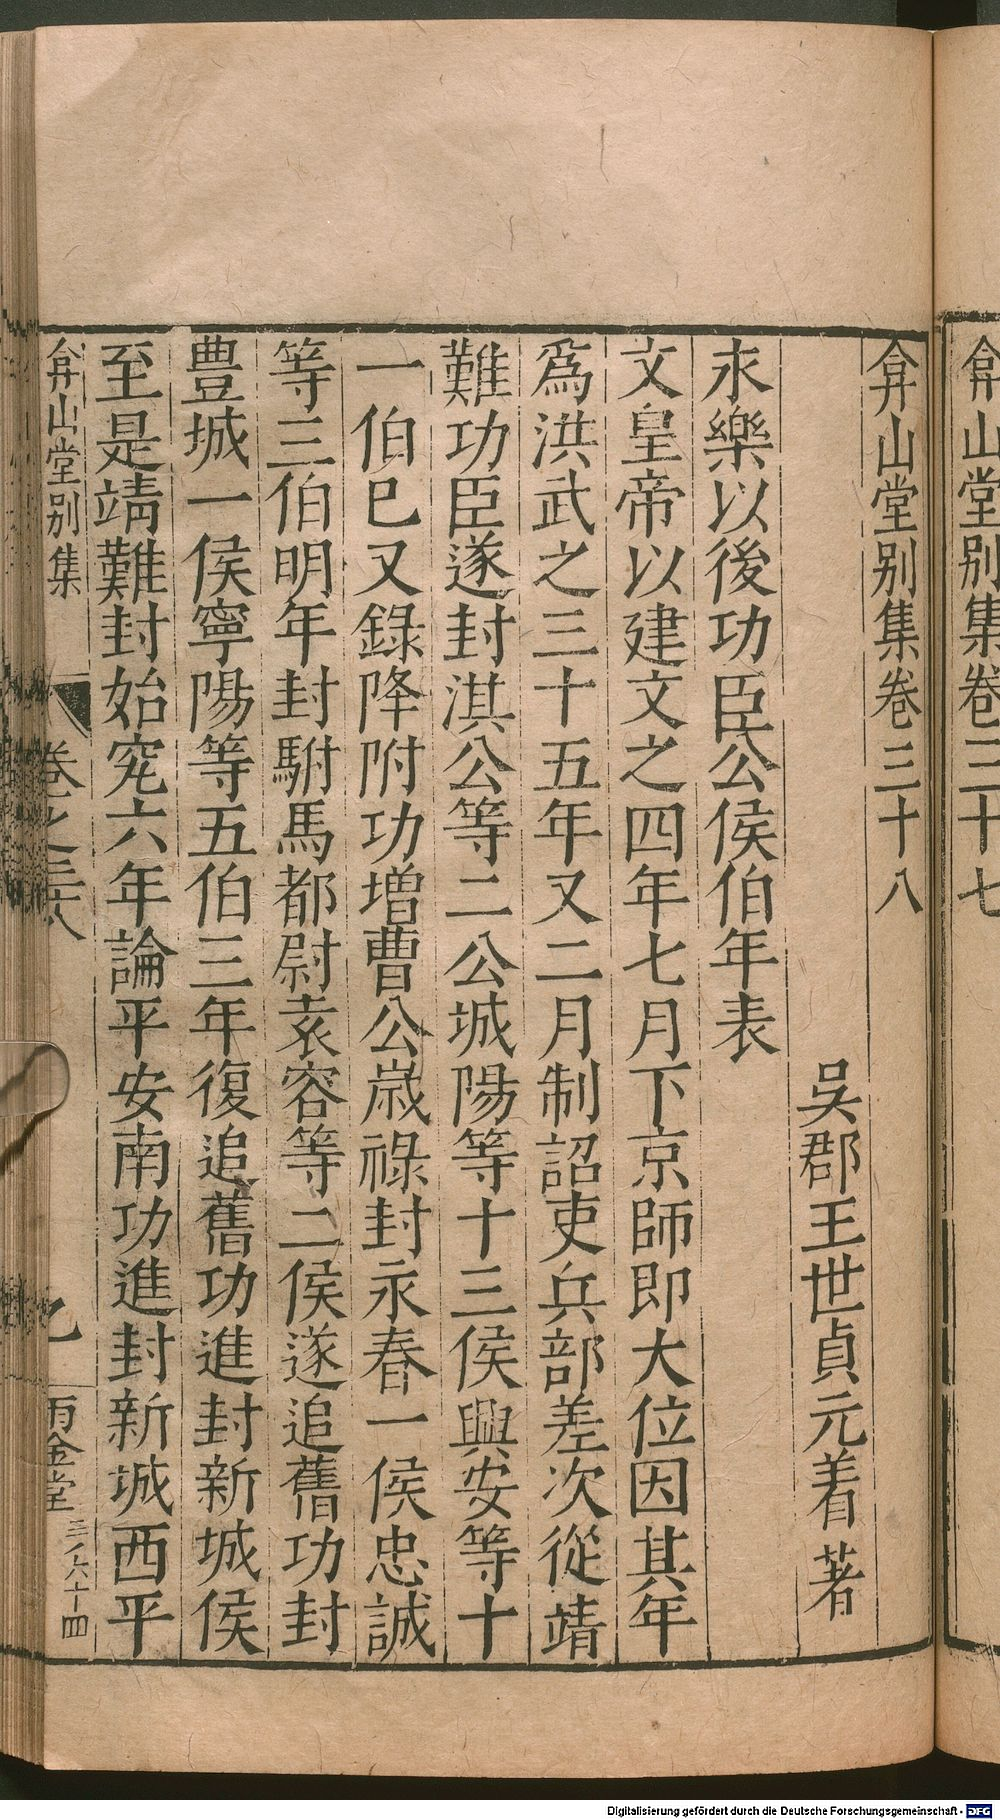 弇山堂别集卷三十七
弇山堂别集卷三十八
吳郡王世貞元着著
永樂以後功臣公侯伯年表
文皇帝以建文之四年七月下京師即大位因其年
爲洪武之三十五年又二月制詔吏兵部差次從靖
難功臣遂封淇公等二公城陽等十三侯興安等十
一伯巳又錄降附功增曹公歲祿封永春一侯忠誠
等三伯明年封駙馬都尉袁容等二侯遂追舊功封
豊城一侯寧陽等五伯三年復追舊功進封新城侯
至是靖難封始完六年論平安南功進封新城西平
弇山堂别集
卷之三十八
雨金堂
三ノ六十四
Digitalisierung gefördert durch die Deutsche Forschungsgemeinschaft - DFG